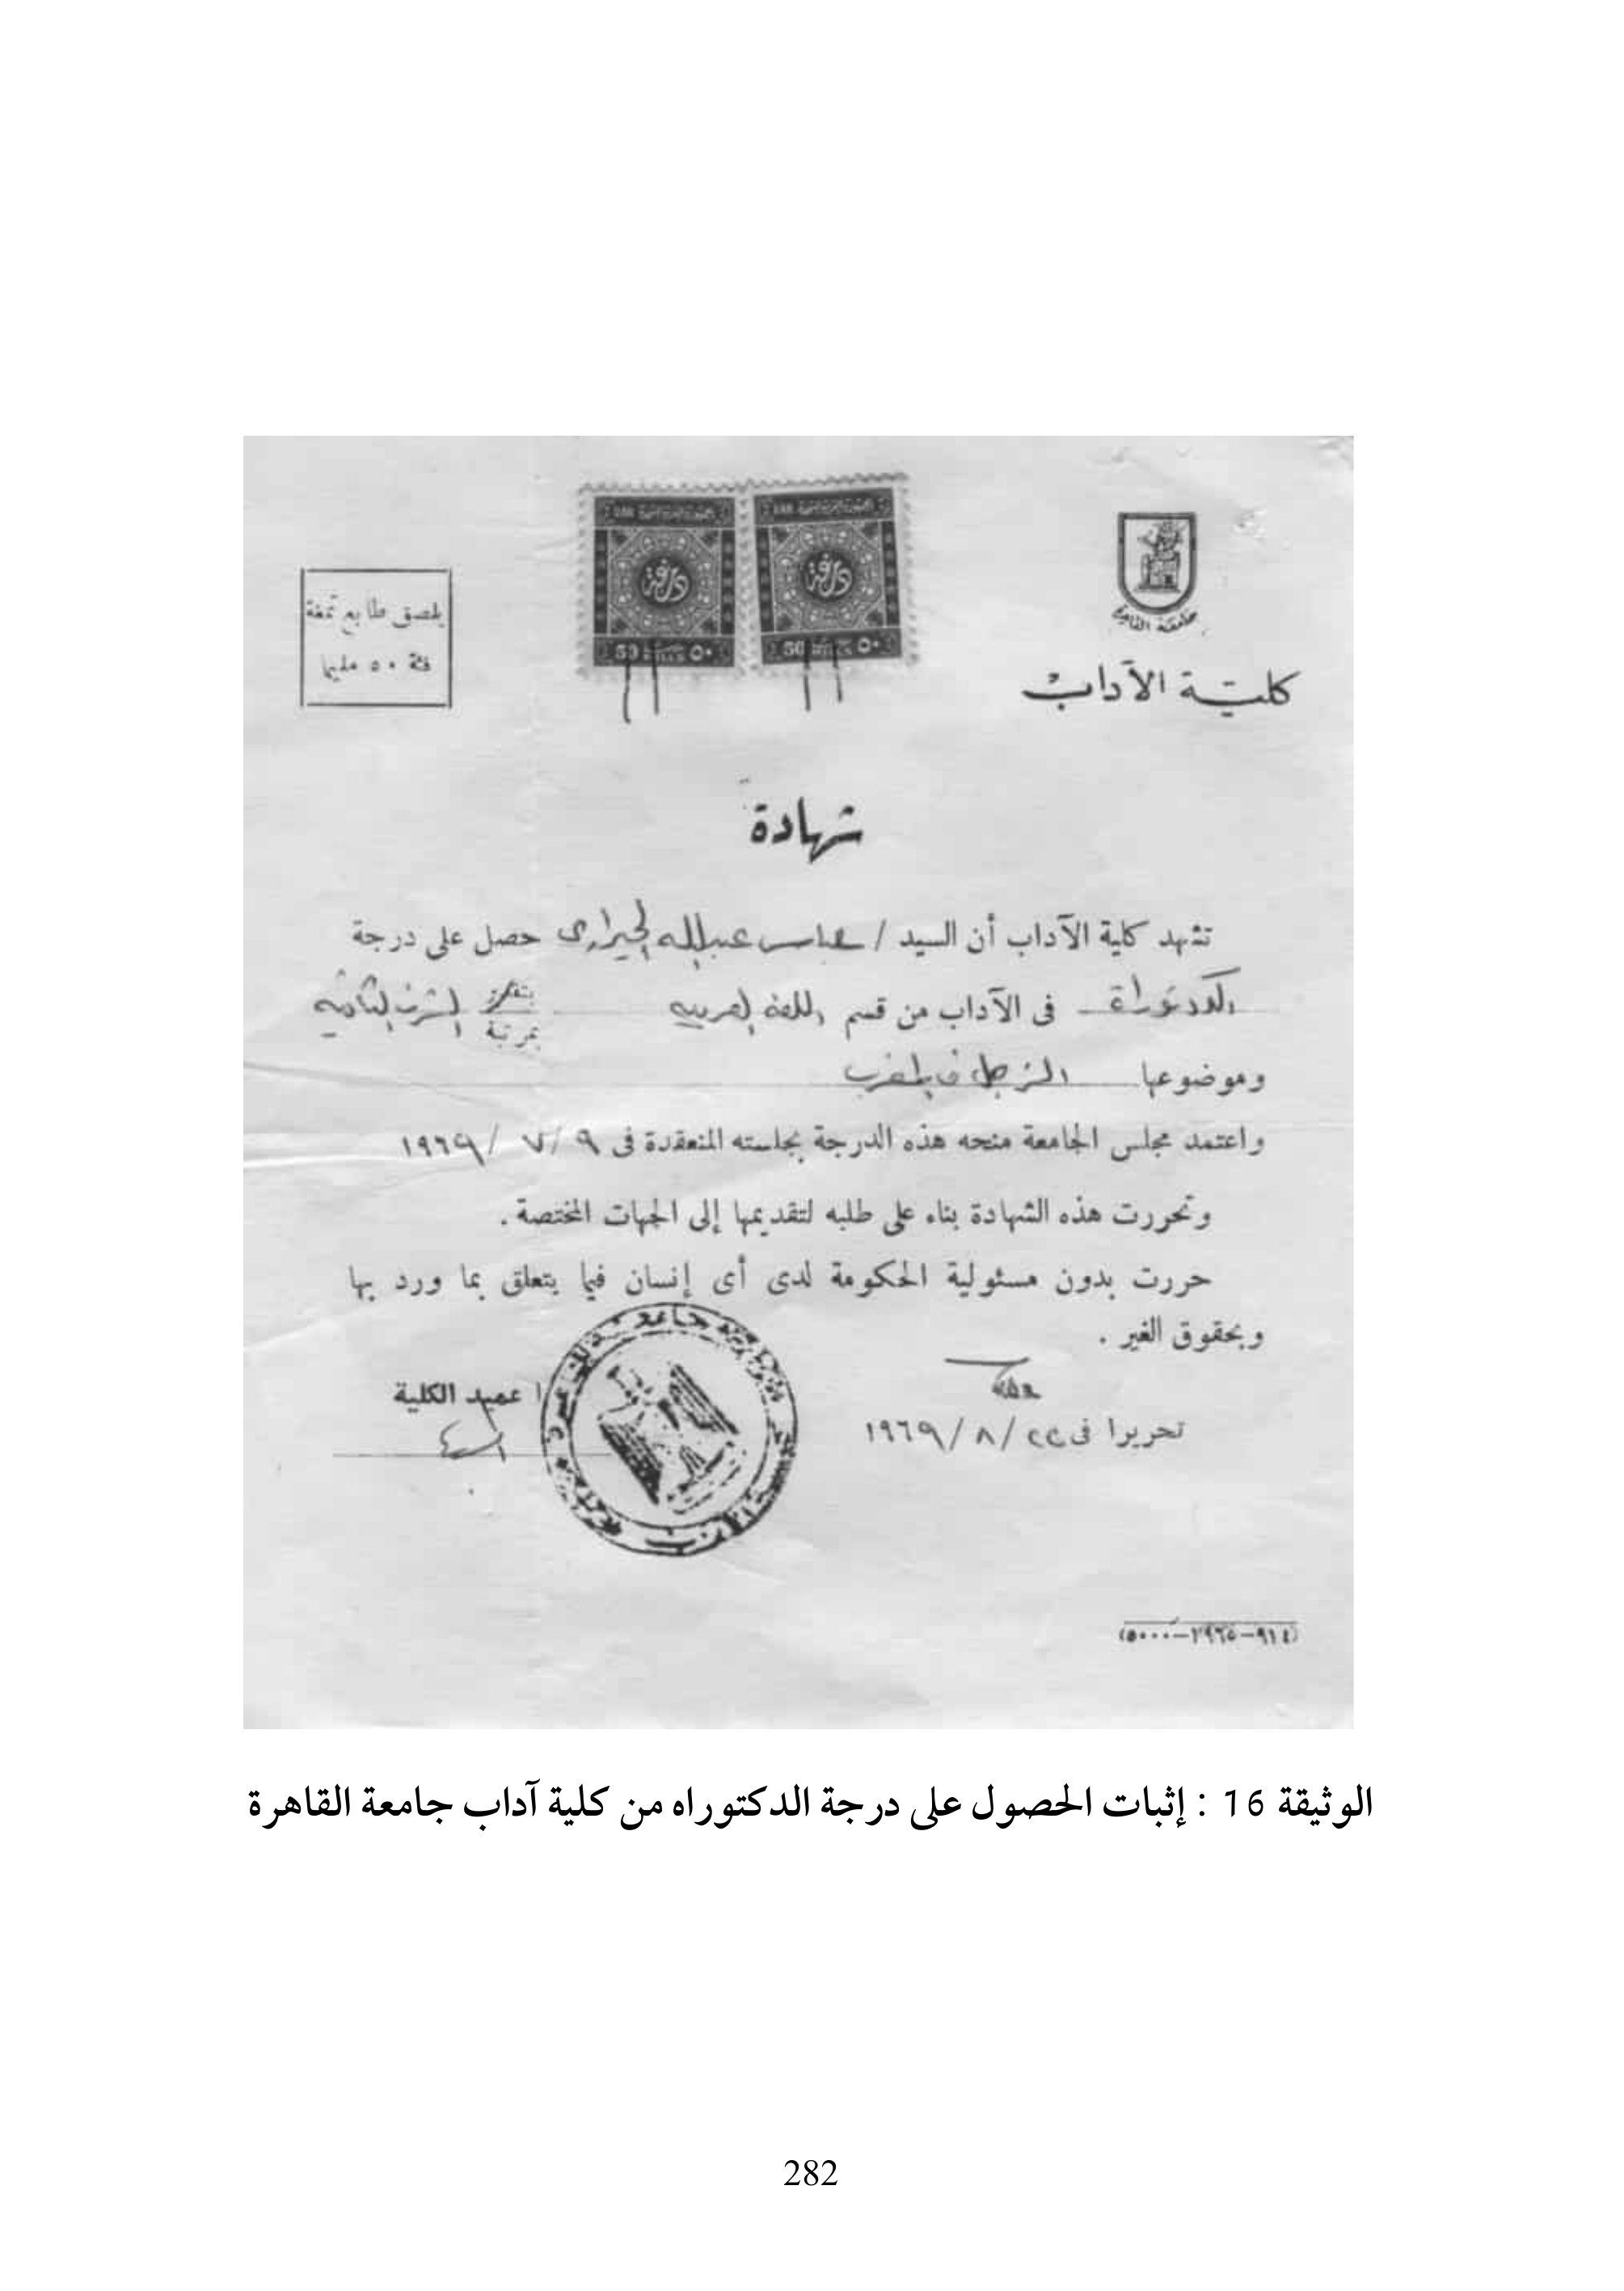 جامعة القاهرة
كليّة الآداب
يلصق طابع تمغة
فئة ٥٠ مليما
دمغة
50 MILLS ٥٠
دمغة
50 MILLS ٥٠
شهادة
تشهد كلية الآداب أن السيد / عباس عبدالله الجيرارى حصل على درجة
الدكتوراة فى الآداب من قسم اللغة العربية بتقدير بمرتبة الشرف الثانية
وموضوعها الزجل فى المغرب
واعتمد مجلس الجامعة منحه هذه الدرجة بجلسته المنعقدة فى ٩ / ٧ / ١٩٦٩
وتحررت هذه الشهادة بناء على طلبه لتقديمها إلى الجهات المختصة .
حررت بدون مسئولية الحكومة لدى أى إنسان فيما يتعلق بما ورد بها
وبحقوق الغير .
عميد الكلية
تحريرا فى ٢٣ / ٨ / ١٩٦٩
(٩١٤-٢٩٦٥-٥٠٠٠)
الوثيقة 16 : إثبات الحصول على درجة الدكتوراه من كلية آداب جامعة القاهرة
282